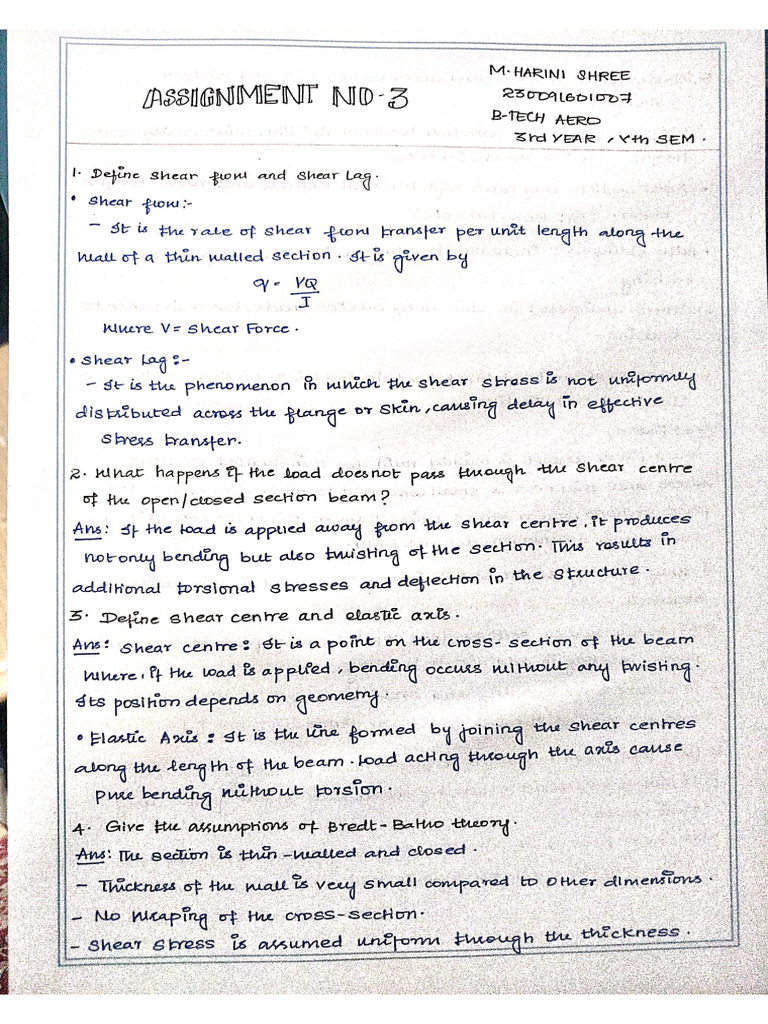 ASSIGNMENT NO-3
M. HARINI SHREE
230091601007
B-TECH AERO
3rd YEAR, Vth SEM.
1. Define shear flow and shear Lag.
• Shear flow:-
- It is the rate of shear flow transfer per unit length along the
wall of a thin walled section. It is given by
q = VQ
I
Where V = Shear Force.
• Shear Lag:-
- It is the phenomenon in which the shear stress is not uniformly
distributed across the flange or skin, causing delay in effective
stress transfer.
2. What happens if the load doesnot pass through the shear centre
of the open/closed section beam?
Ans: If the load is applied away from the shear centre, it produces
not only bending but also twisting of the section. This results in
additional torsional stresses and deflection in the structure.
3. Define shear centre and elastic axis.
Ans: Shear centre: It is a point on the cross-section of the beam
where, if the load is applied, bending occurs without any twisting.
Its position depends on geometry.
• Elastic Axis: It is the line formed by joining the shear centres
along the length of the beam. Load acting through the axis cause
pure bending without torsion.
4. Give the assumptions of Bredt-Batho theory.
Ans: The section is thin-walled and closed.
- Thickness of the wall is very small compared to other dimensions.
- No warping of the cross-section.
- Shear stress is assumed uniform through the thickness.